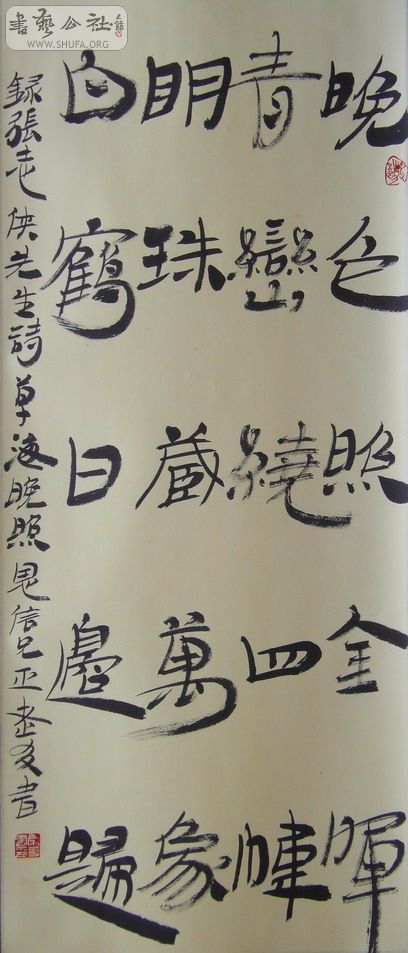 書藝公社
WWW.SHUFA.ORG
晚色照金暉
青巒繞四幃
明珠藏萬象
白鶴日邊歸
錄張老俠先生詩草海晚照 信兄正 書